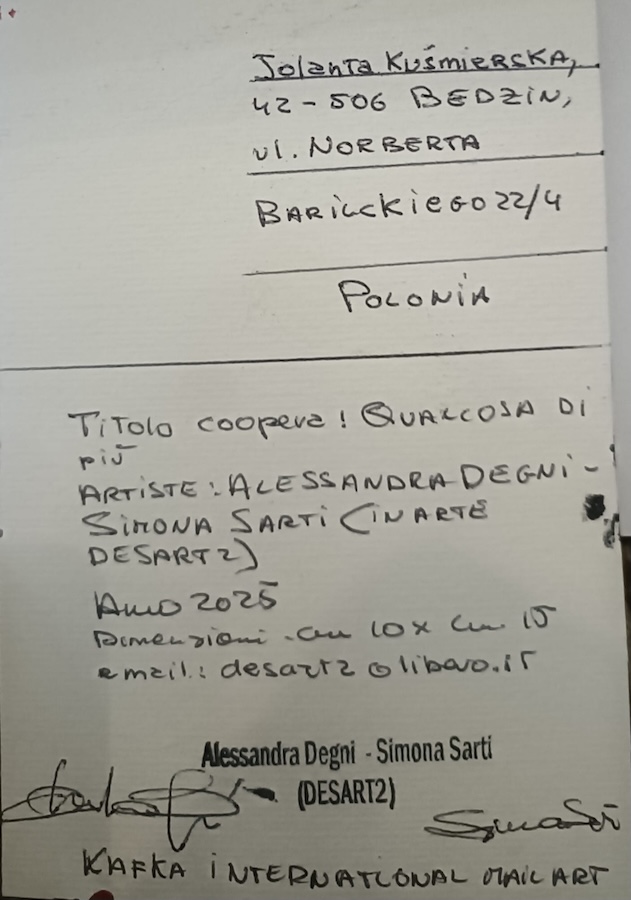 Jolanta KUŚMIERSKA,
42-506 BEDZIN,
ul. NORBERTA
BARILCKIEGO 22/4
POLONIA
TiTOLO coopera! QUALCOSA Di
più
ARTISTE: ALESSANDRA DEGNI-
SIMONA SARTI (IN ARTE
DESART2)
Anno 2025
Dimenzioni. cm 10x cm 15
email: desart2@libero.it
Alessandra Degni - Simona Sarti
(DESART2)
KAFKA iNTERNATIONAL MAIL ART